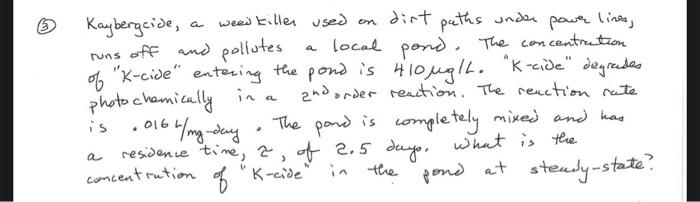 ③ Kaybergcide, a weed killer used on dirt paths under power lines,
runs off and pollutes a local pond. The concentration
of "K-cide" entering the pond is 410 µg/L. "K-cide" degrades
photochemically in a 2nd order reaction. The reaction rate
is .016 L/mg-day. The pond is completely mixed and has
a residence time, τ, of 2.5 days. What is the
concentration of "K-cide" in the pond at steady-state?